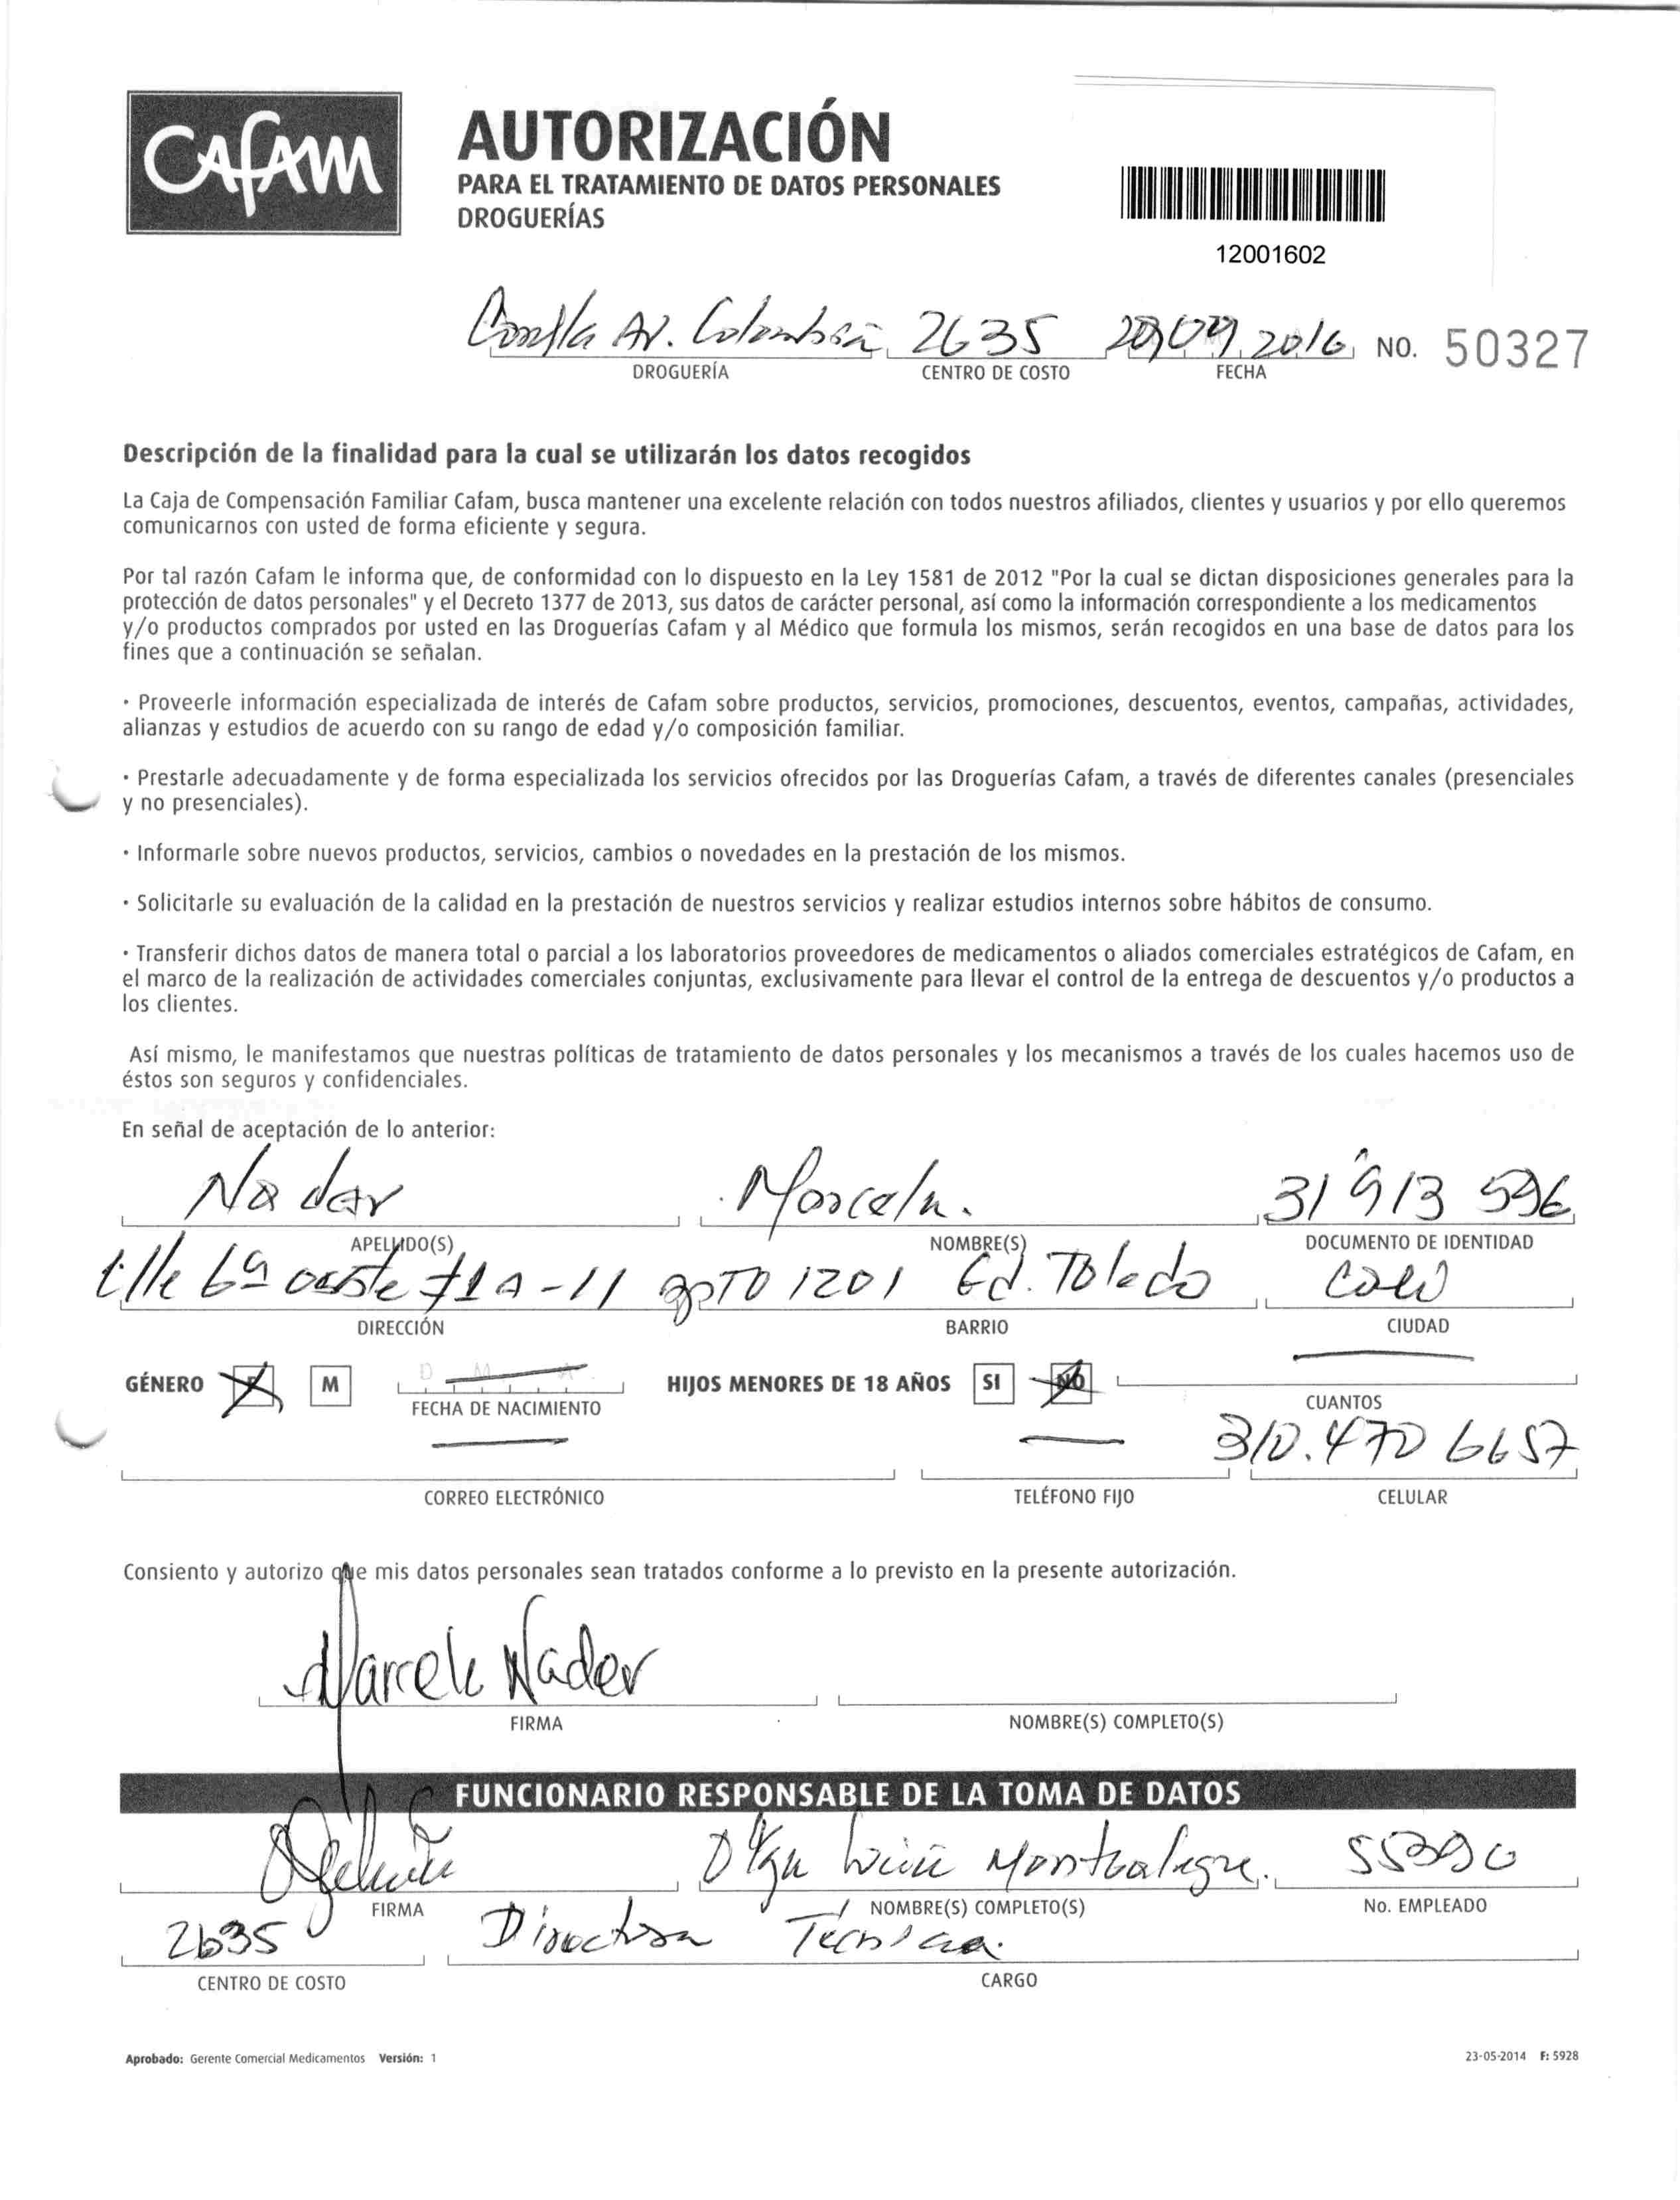 CAFAM
AUTORIZACIÓN
PARA EL TRATAMIENTO DE DATOS PERSONALES
DROGUERÍAS
12001602
Av. Colombia 2635 2016 NO. 50327
DROGUERÍA CENTRO DE COSTO FECHA
Descripción de la finalidad para la cual se utilizarán los datos recogidos
La Caja de Compensación Familiar Cafam, busca mantener una excelente relación con todos nuestros afiliados, clientes y usuarios y por ello queremos
comunicarnos con usted de forma eficiente y segura.
Por tal razón Cafam le informa que, de conformidad con lo dispuesto en la Ley 1581 de 2012 "Por la cual se dictan disposiciones generales para la
protección de datos personales" y el Decreto 1377 de 2013, sus datos de carácter personal, así como la información correspondiente a los medicamentos
y/o productos comprados por usted en las Droguerías Cafam y al Médico que formula los mismos, serán recogidos en una base de datos para los
fines que a continuación se señalan.
· Proveerle información especializada de interés de Cafam sobre productos, servicios, promociones, descuentos, eventos, campañas, actividades,
alianzas y estudios de acuerdo con su rango de edad y/o composición familiar.
· Prestarle adecuadamente y de forma especializada los servicios ofrecidos por las Droguerías Cafam, a través de diferentes canales (presenciales
y no presenciales).
· Informarle sobre nuevos productos, servicios, cambios o novedades en la prestación de los mismos.
· Solicitarle su evaluación de la calidad en la prestación de nuestros servicios y realizar estudios internos sobre hábitos de consumo.
· Transferir dichos datos de manera total o parcial a los laboratorios proveedores de medicamentos o aliados comerciales estratégicos de Cafam, en
el marco de la realización de actividades comerciales conjuntas, exclusivamente para llevar el control de la entrega de descuentos y/o productos a
los clientes.
Así mismo, le manifestamos que nuestras políticas de tratamiento de datos personales y los mecanismos a través de los cuales hacemos uso de
éstos son seguros y confidenciales.
En señal de aceptación de lo anterior:
Nader Marcela. 31'913 596
APELLIDO(S) NOMBRE(S) DOCUMENTO DE IDENTIDAD
Clle 6a oeste #1A-11 apTO 1201 Ed. Toledo Cali
DIRECCIÓN BARRIO CIUDAD
GÉNERO F M D M A HIJOS MENORES DE 18 AÑOS SI NO
FECHA DE NACIMIENTO CUANTOS
310.470 6657
CORREO ELECTRÓNICO TELÉFONO FIJO CELULAR
Consiento y autorizo que mis datos personales sean tratados conforme a lo previsto en la presente autorización.
Marcela Nader
FIRMA NOMBRE(S) COMPLETO(S)
FUNCIONARIO RESPONSABLE DE LA TOMA DE DATOS
Olga Montealegre.
FIRMA NOMBRE(S) COMPLETO(S) No. EMPLEADO
2635 Directora Técnica.
CENTRO DE COSTO CARGO
Aprobado: Gerente Comercial Medicamentos Versión: 1 23-05-2014 F: 5928